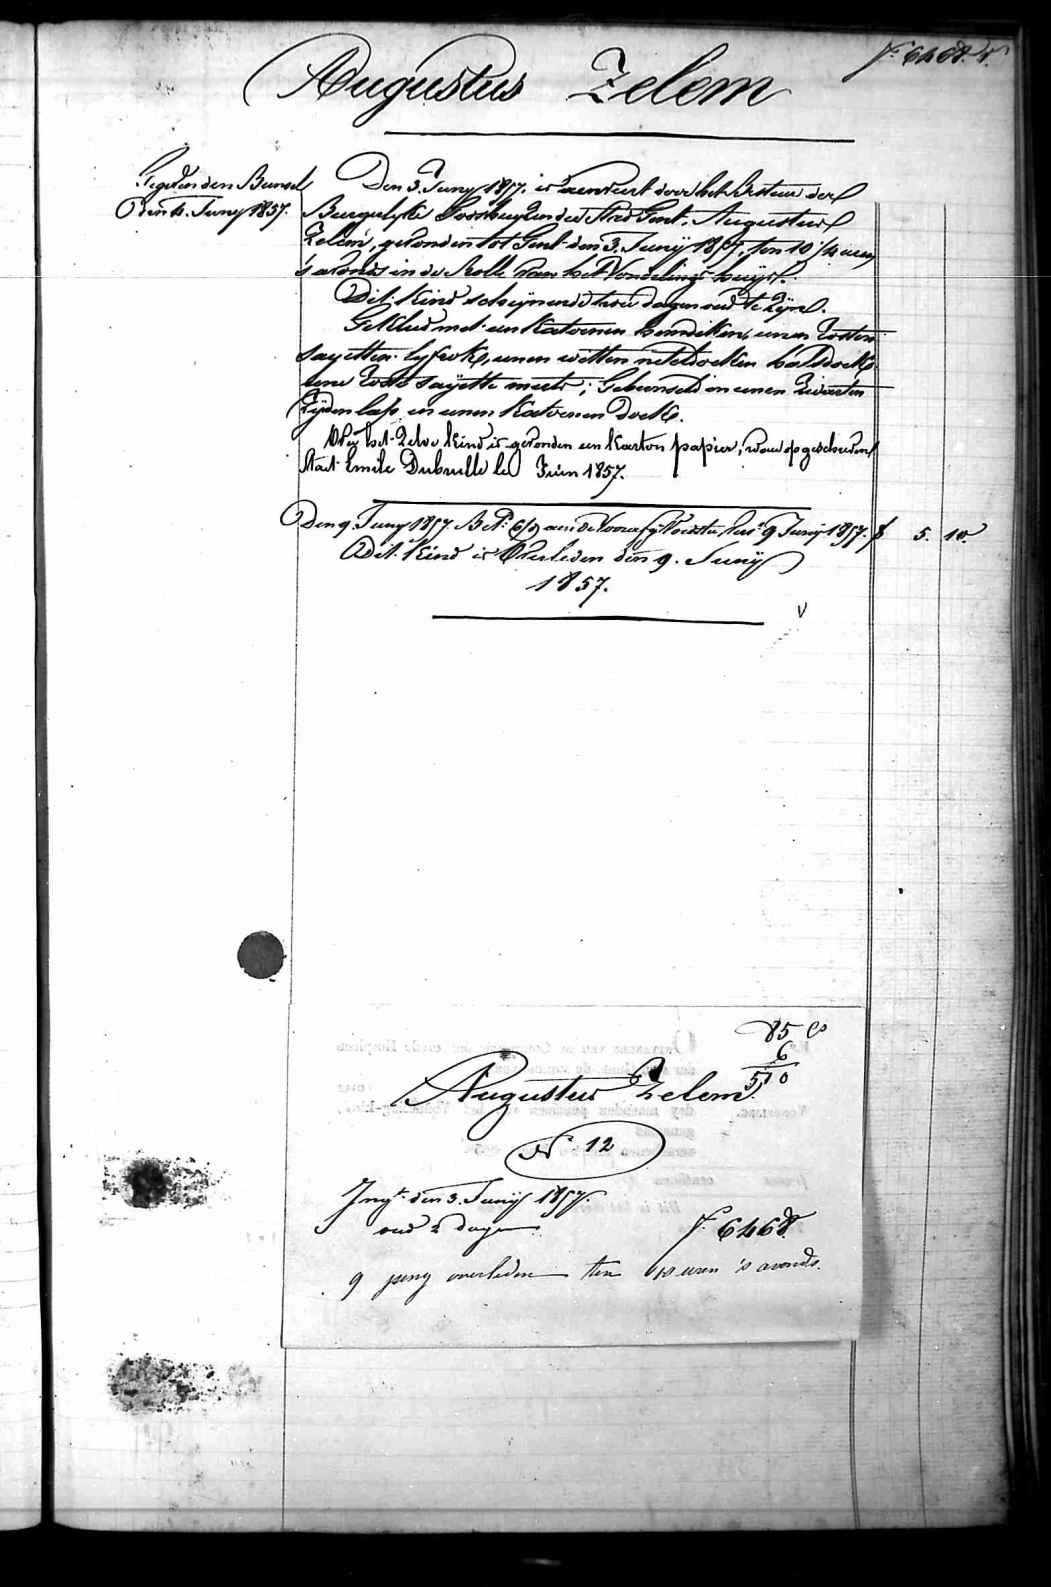 f° 6468. V.
Augustus Zelem
Gegeven den Bunsel
Den 4. Juny 1857.
Den 3. Juny 1857. is aenveert door het bestuer der
Burgelyke Godshuyzen der Stad Gent, Augustus
Zelem, gevonden tot Gent den 3. Juny 1857, ten 10 1/4 uren
's avonds in de Rolle van het Vondelings huys.
Dit kind schynende twee dagen oud te zyn.
Gekleed met een katoenen hemdeken, eenen rosten
sayetten lyfrok, eenen witten neteldoeken halsdoek,
eene roste sayette muts; Gebunseld in eenen zwarten
zyden lap en eenen katoenen doek.
Op het zelve kind is gevonden een karton papier, waer op geschreven
stact Emile Dubrulle le Juin 1857.
Den 9. Juny 1857 Bet. 6/9 aen de voedster, tot 9 Juny 1857. f 5. 10.
Dit kind is Overleden den 9. Juny
1857.
V
85 Cs
6
510
Augustus Zelem.
N° 12
Ing.t den 3. Juny 1857.
oud 2 dagen
f° 6468
9 juny overleden ten 10 uren 's avonds.